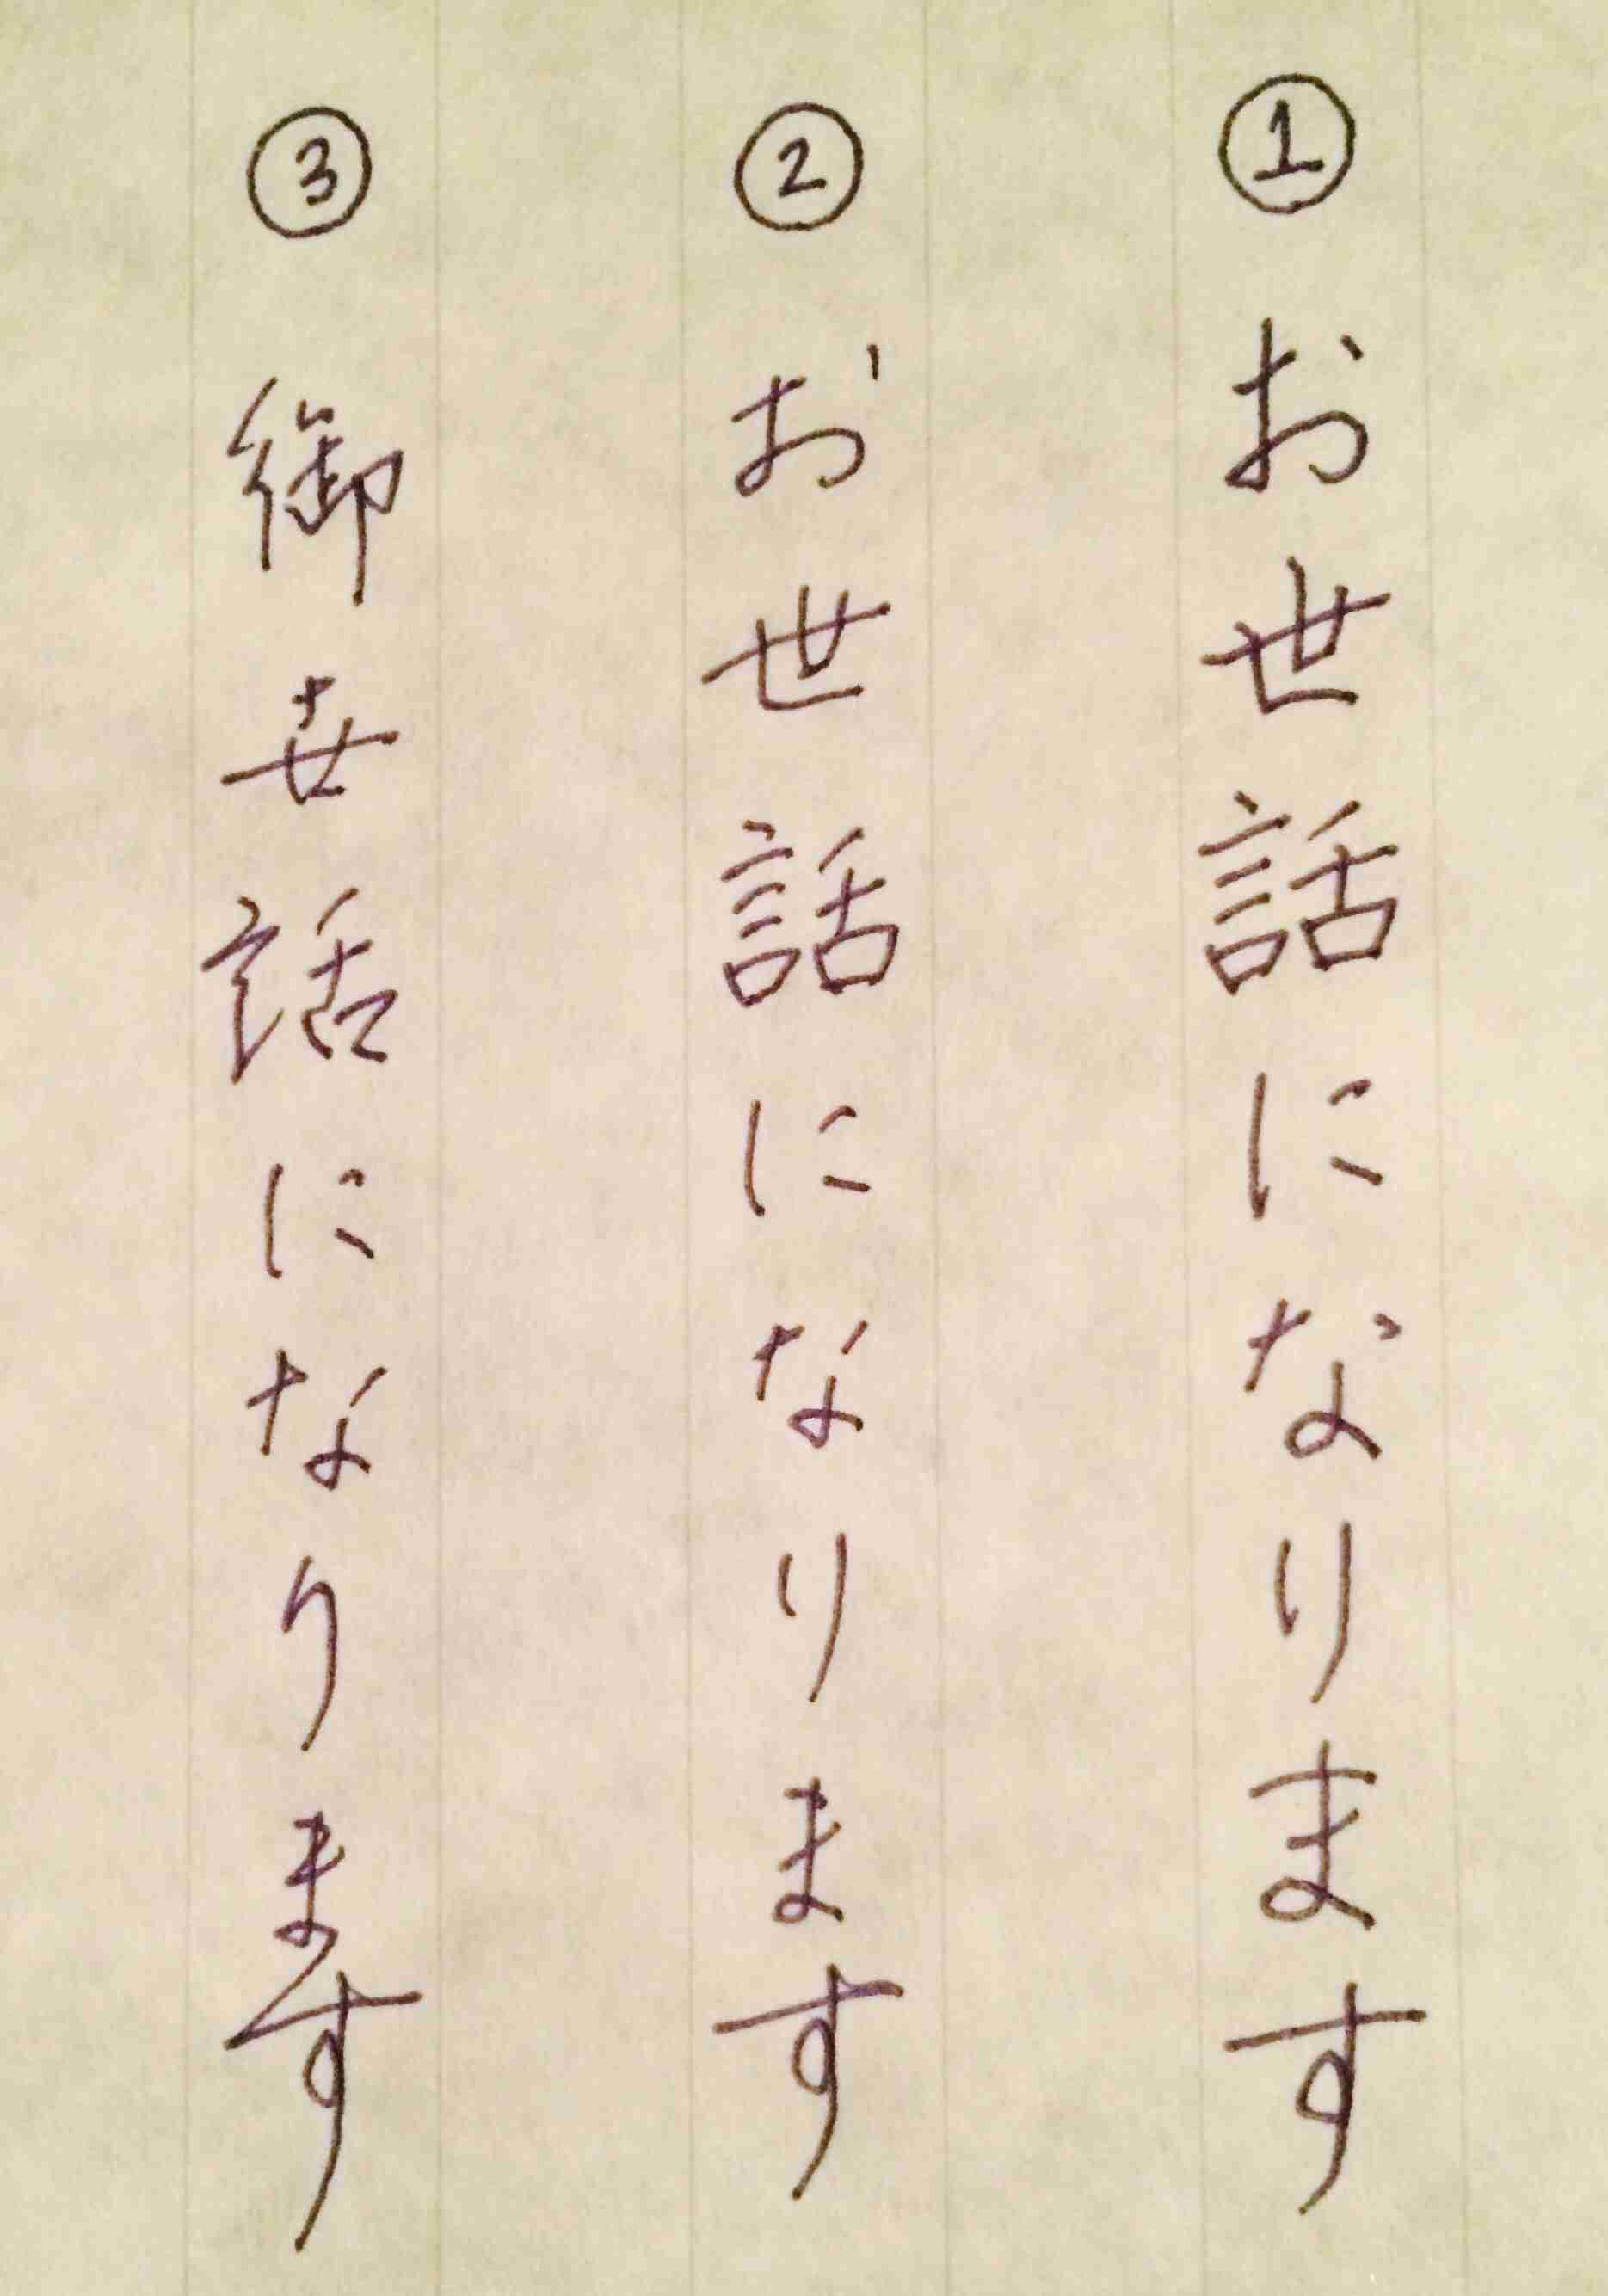 ① お世話になります
② お世話になります
③ 御世話になります